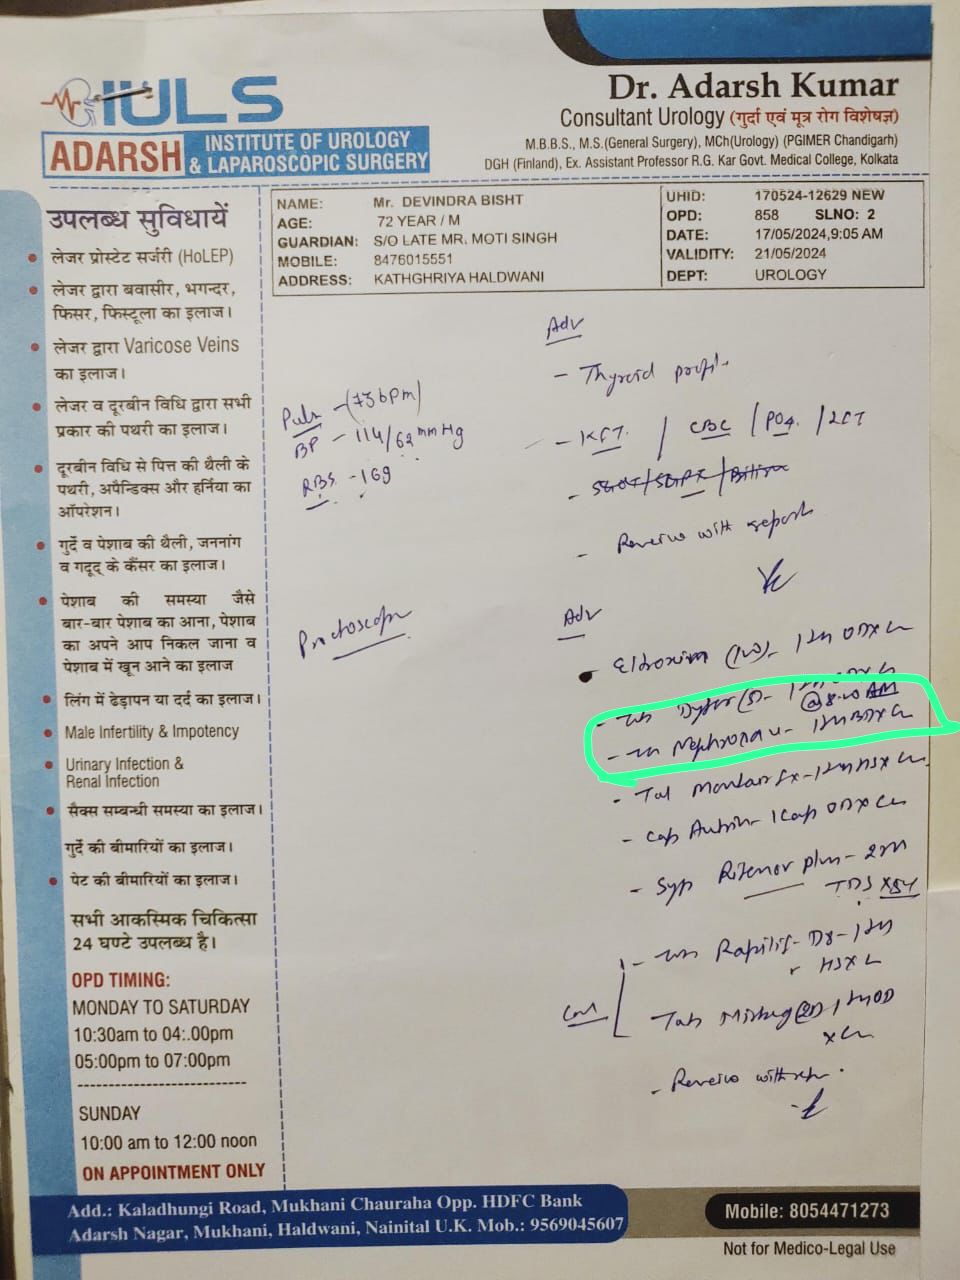 IULS
ADARSH INSTITUTE OF UROLOGY
& LAPAROSCOPIC SURGERY
Dr. Adarsh Kumar
Consultant Urology (गुर्दा एवं मूत्र रोग विशेषज्ञ)
M.B.B.S., M.S.(General Surgery), MCh(Urology) (PGIMER Chandigarh)
DGH (Finland), Ex. Assistant Professor R.G. Kar Govt. Medical College, Kolkata
NAME: Mr. DEVINDRA BISHT
AGE: 72 YEAR / M
GUARDIAN: S/O LATE MR. MOTI SINGH
MOBILE: 8476015551
ADDRESS: KATHGHRIYA HALDWANI
UHID: 170524-12629 NEW
OPD: 858 SLNO: 2
DATE: 17/05/2024,9:05 AM
VALIDITY: 21/05/2024
DEPT: UROLOGY
उपलब्ध सुविधायें
लेजर प्रोस्टेट सर्जरी (HoLEP)
लेजर द्वारा बवासीर, भगन्दर,
फिसर, फिस्टूला का इलाज।
लेजर द्वारा Varicose Veins
का इलाज।
लेजर व दूरबीन विधि द्वारा सभी
प्रकार की पथरी का इलाज।
दूरबीन विधि से पित्त की थैली के
पथरी, अपैन्डिक्स और हर्निया का
ऑपरेशन।
गुर्दे व पेशाब की थैली, जननांग
व गदूद के कैंसर का इलाज।
पेशाब की समस्या जैसे
बार-बार पेशाब का आना, पेशाब
का अपने आप निकल जाना व
पेशाब में खून आने का इलाज
लिंग में ढेड़ापन या दर्द का इलाज।
Male Infertility & Impotency
Urinary Infection &
Renal Infection
सैक्स सम्बन्धी समस्या का इलाज।
गुर्दे की बीमारियों का इलाज।
पेट की बीमारियों का इलाज।
सभी आकस्मिक चिकित्सा
24 घण्टे उपलब्ध है।
OPD TIMING:
MONDAY TO SATURDAY
10:30am to 04:.00pm
05:00pm to 07:00pm
SUNDAY
10:00 am to 12:00 noon
ON APPOINTMENT ONLY
Pulse - (73bpm)
BP - 114/62 mmHg
RBS - 169
Proctoscopy
Adv
- Thyroid profile
- KFT / CBC / PO4 / LFT
- SGOT/SGPT/Bilirubin
- Review with reports
Adv
@8-10 AM
- Syp Ritemor plus -
TDS
- Review with
Add.: Kaladhungi Road, Mukhani Chauraha Opp. HDFC Bank
Adarsh Nagar, Mukhani, Haldwani, Nainital U.K. Mob.: 9569045607
Mobile: 8054471273
Not for Medico-Legal Use